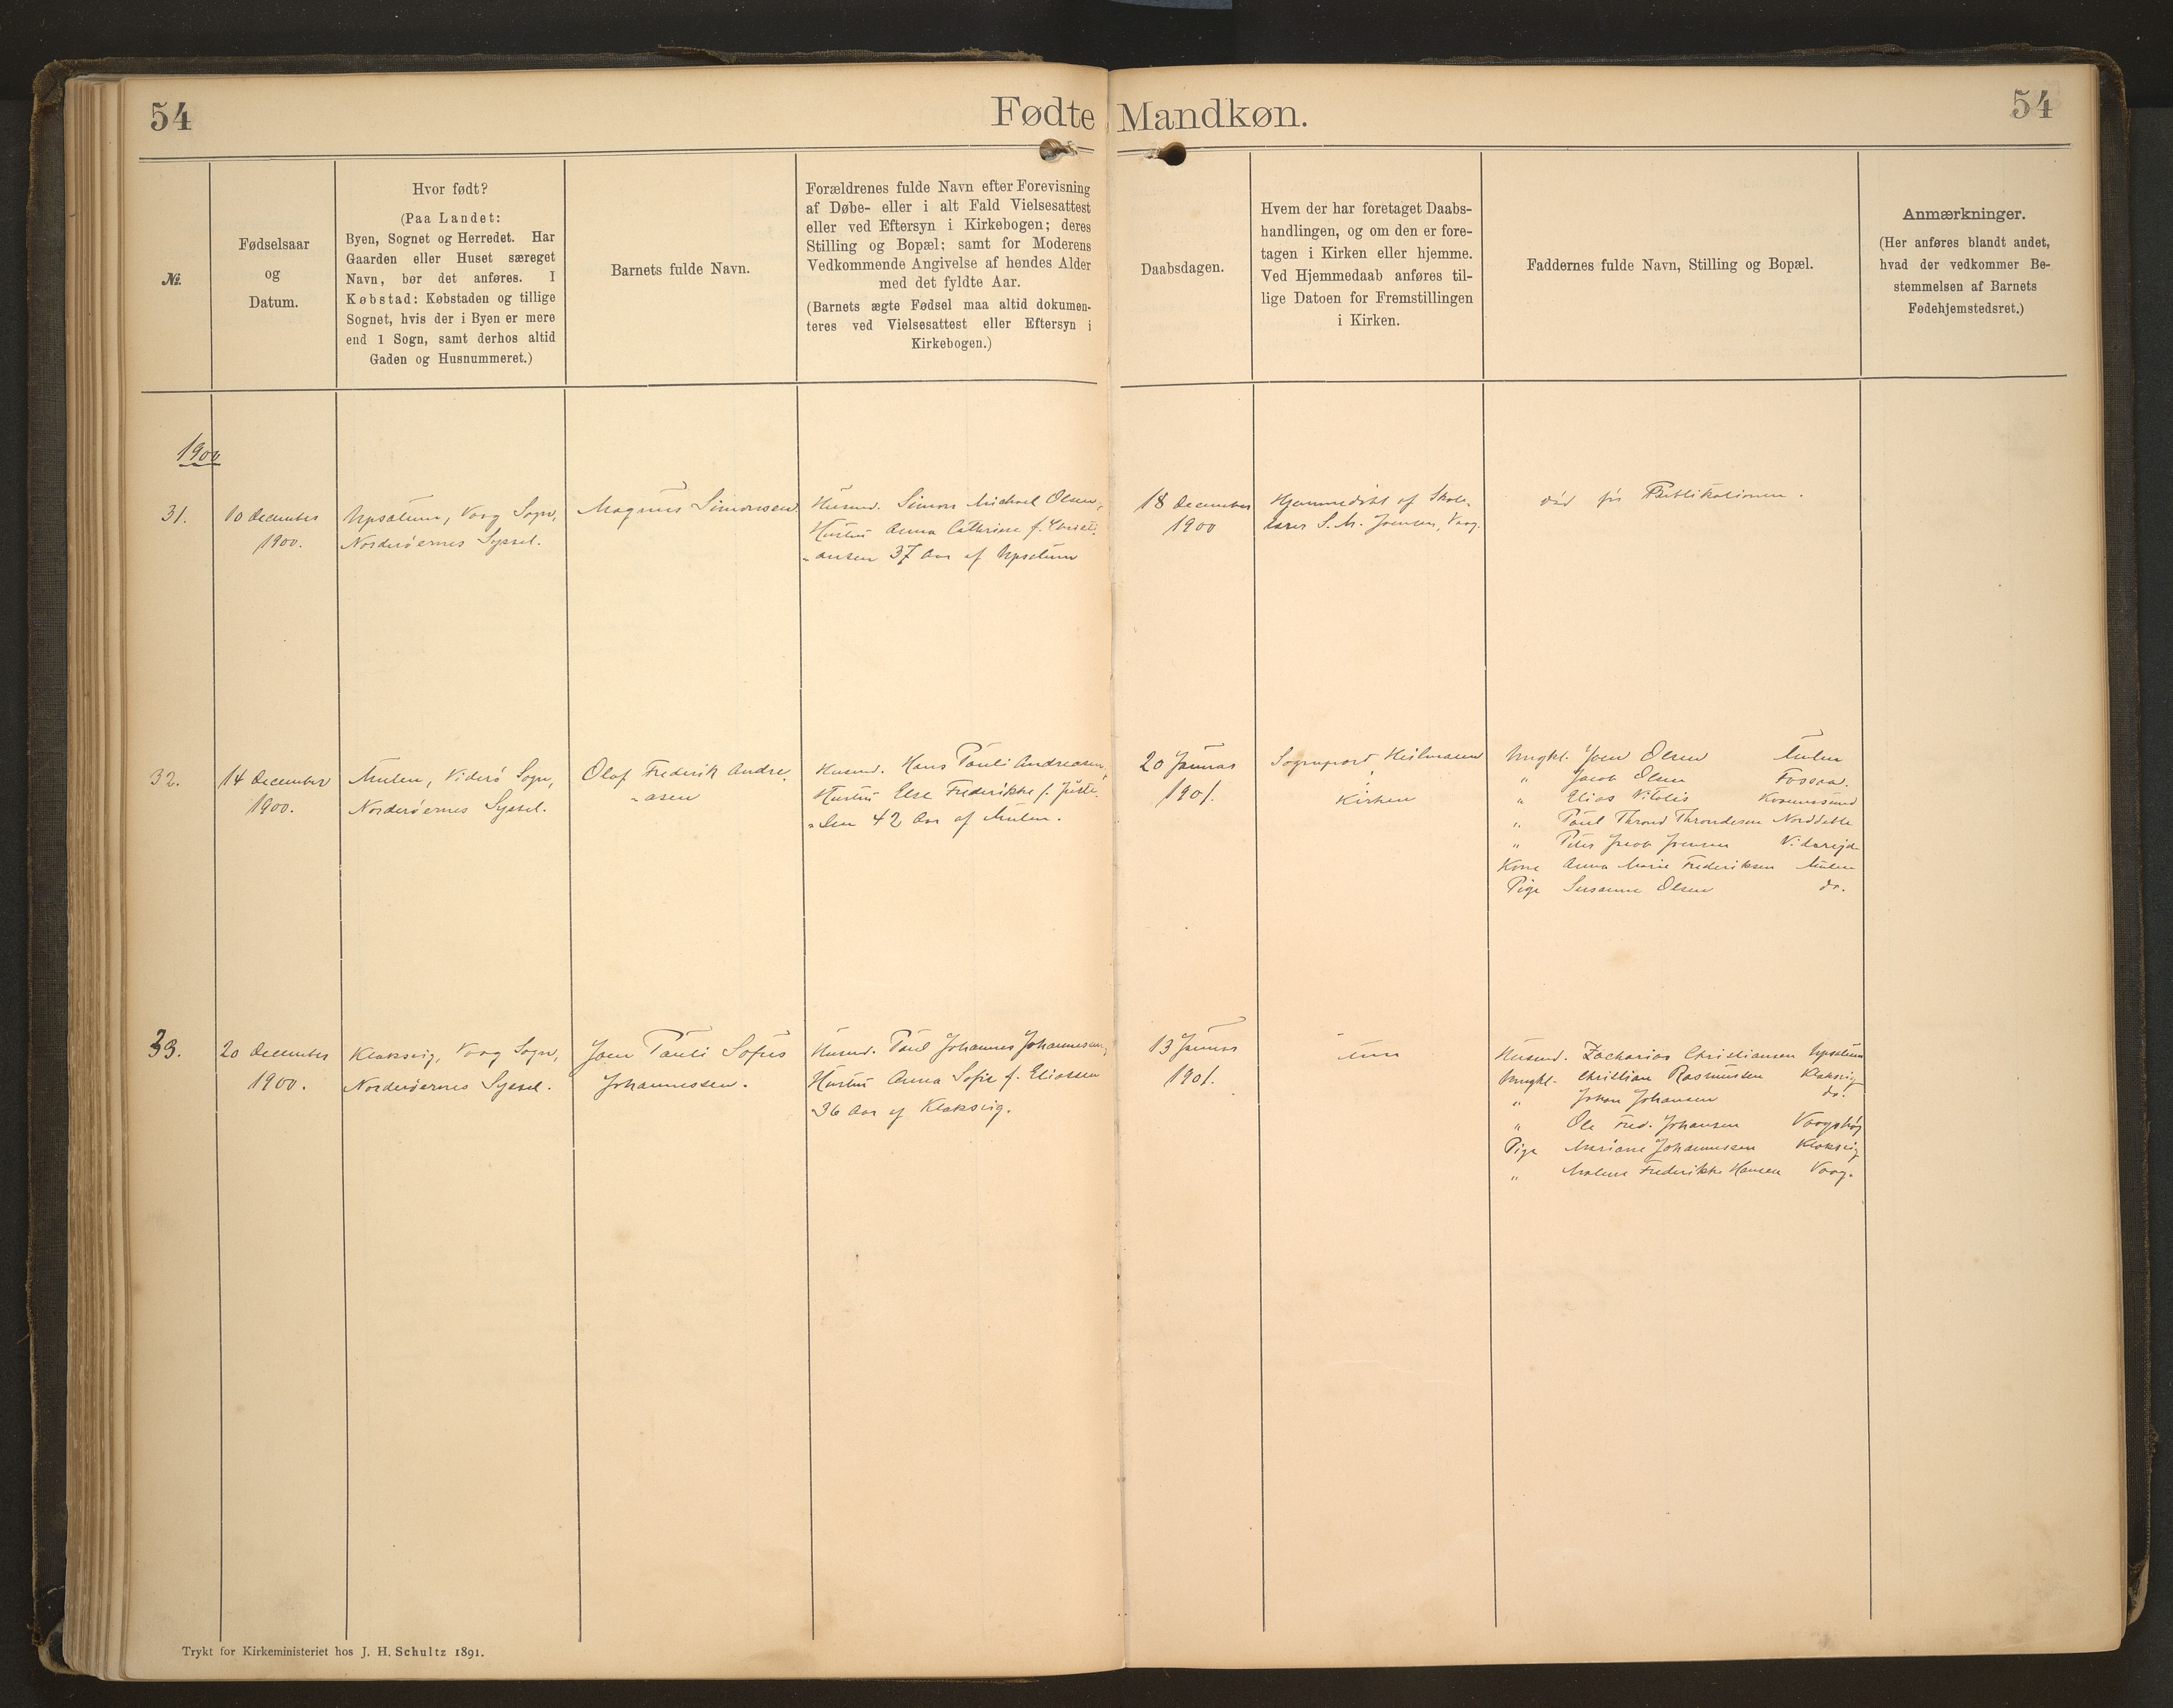 54
Fødte Mandkøn.
54
№.
Fødselsaar
og
Datum.
Hvor født?
(Paa Landet:
Byen, Sognet og Herredet. Har
Gaarden eller Huset særeget
Navn, bør det anføres. I
Købstad: Købstaden og tillige
Sognet, hvis der i Byen er mere
end 1 Sogn, samt derhos altid
Gaden og Husnummeret.)
Barnets fulde Navn.
Forældrenes fulde Navn efter Forevisning
af Døbe- eller i alt Fald Vielsesattest
eller ved Eftersyn i Kirkebogen; deres
Stilling og Bopæl; samt for Moderens
Vedkommende Angivelse af hendes Alder
med det fyldte Aar.
(Barnets ægte Fødsel maa altid dokumen-
teres ved Vielsesattest eller Eftersyn i
Kirkebogen.)
Daabsdagen.
Hvem der har foretaget Daabs-
handlingen, og om den er fore-
tagen i Kirken eller hjemme.
Ved Hjemmedaab anføres til-
lige Datoen for Fremstillingen
i Kirken.
Faddernes fulde Navn, Stilling og Bopæl.
Anmærkninger.
(Her anføres blandt andet,
hvad der vedkommer Be-
stemmelsen af Barnets
Fødehjemstedsret.)
1900
31.
10 december
1900.
Upsalum, Vaag Sogn,
Norderøernes Syssel.
Magnus Simonsen
Husmd. Simon Michael Olsen,
Hustru Anna Cathrine f. Christi-
-ansen 37 Aar af Upsalum
18 december
1900
Hjemmedøbt af Skole-
lærer S. M. Joensen, Vaag.
død før Publikationen.
32.
14 december
1900.
Mulen, Viderø Sogn,
Norderøernes Syssel.
Olaf Frederik Andre-
-asen
Husmd. Hans Pauli Andreasen,
Hustru Else Frederikke f.
42 Aar af Mulen.
20 Januar
1901.
Sognepræst Heilmann
i
Kirken
Ungkl. Joen Olsen Mulen
" Jacob Olsen Fossaa.
" Elias Vitalis
" Paul Thrond Throndesen Norddeble
" Peter Jacob Joensen Viderejde
Kone Anna Marie Frederiksen Mulen
Pige Susanne Olsen do.
33.
20 december
1900.
Klaksvig, Vaag Sogn,
Norderøernes Syssel.
Joen Pauli Sofus
Johannessen.
Husmd. Paul Johannes Johannesen,
Hustru Anna Sofie f. Eliassen
36 Aar af Klaksvig.
13 Januar
1901.
Husmd. Zacharias Christiansen Upsalum
Ungkl. Christian Rasmussen Klaksvig
" Johan Johansen do.
" Ole Fred. Johansen
Pige Mariane Johannessen Klaksvig
" Malene Frederikke Hansen Vaag.
Trykt for Kirkeministeriet hos J. H. Schultz 1891.